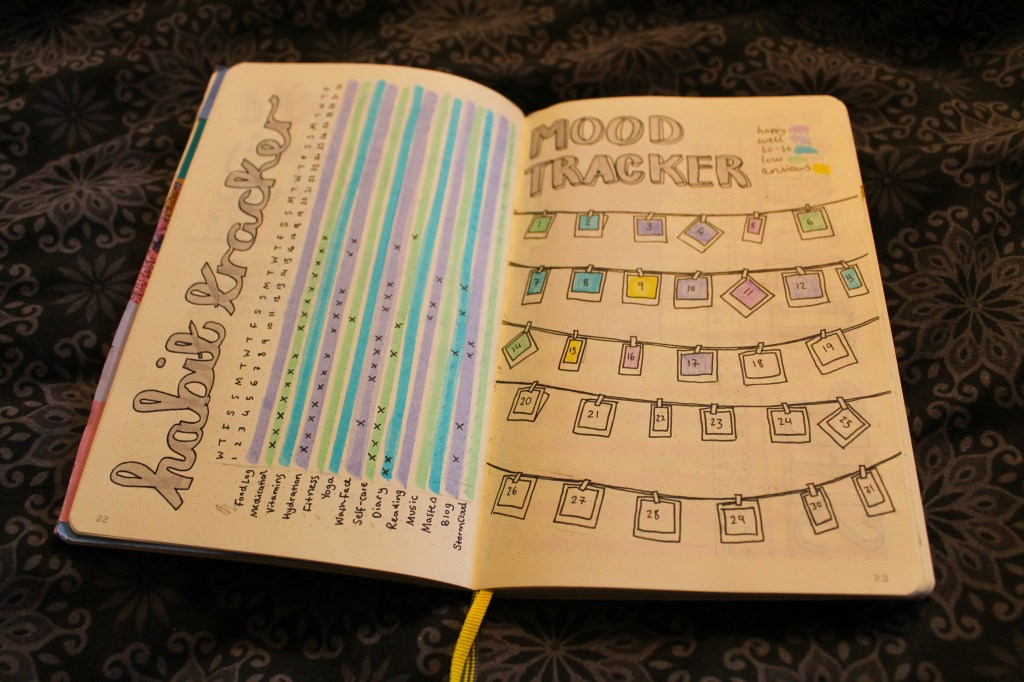 habit tracker
W T F S S M T W T F S S M T W T F S S M T W T F S S M T W T F
1 2 3 4 5 6 7 8 9 10 11 12 13 14 15 16 17 18 19 20 21
Food Log
Medication
Vitamins
Hydration
Fitness
Yoga
Wash Face
Self-care
Diary
Reading
Music
Masters
Blog
22
MOOD
TRACKER
happy
well
so-so
low
anxious
1 2 3 4 5 6
7 8 9 10 11 12 13
14 15 16 17 18 19
20 21 22 23 24 25
26 27 28 29 30 31
23